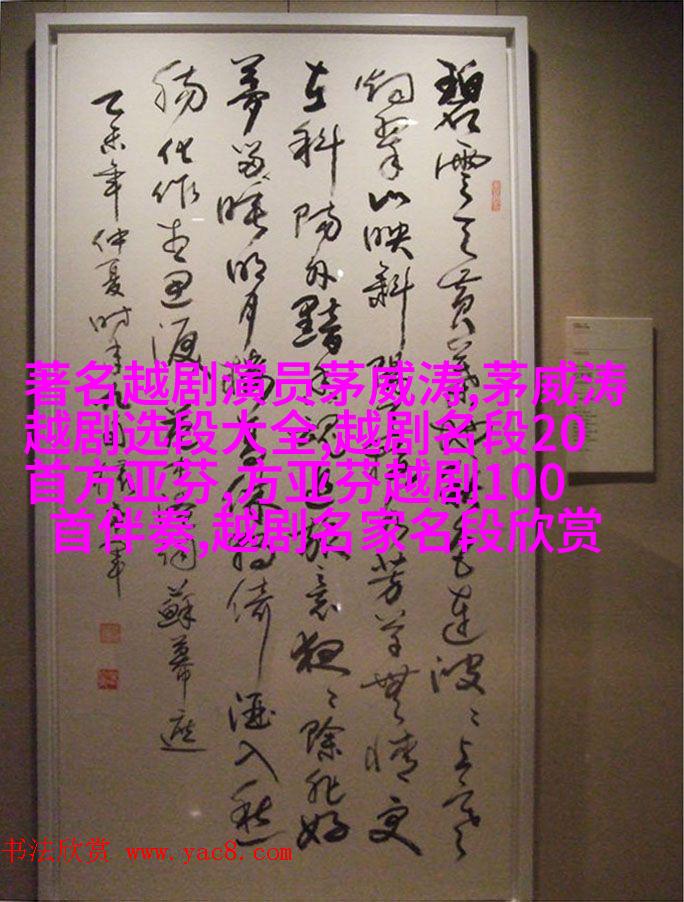 碧雲天黄葉地秋色連波〻上寒
烟翠山映斜陽天接水芳草無情更
在斜陽外黯鄉魂追旅意夜〻除非好
夢留睡明月樓高休獨倚酒入愁
腸化作相思淚范仲淹詞蘇幕遮
乙未年仲夏时
著名越剧演员茅威涛,茅威涛
越剧选段大全,越剧名段20
首方亚芬,方亚芬越剧100
首伴奏,越剧名家名段欣赏
书法欣赏 www.yac8.com